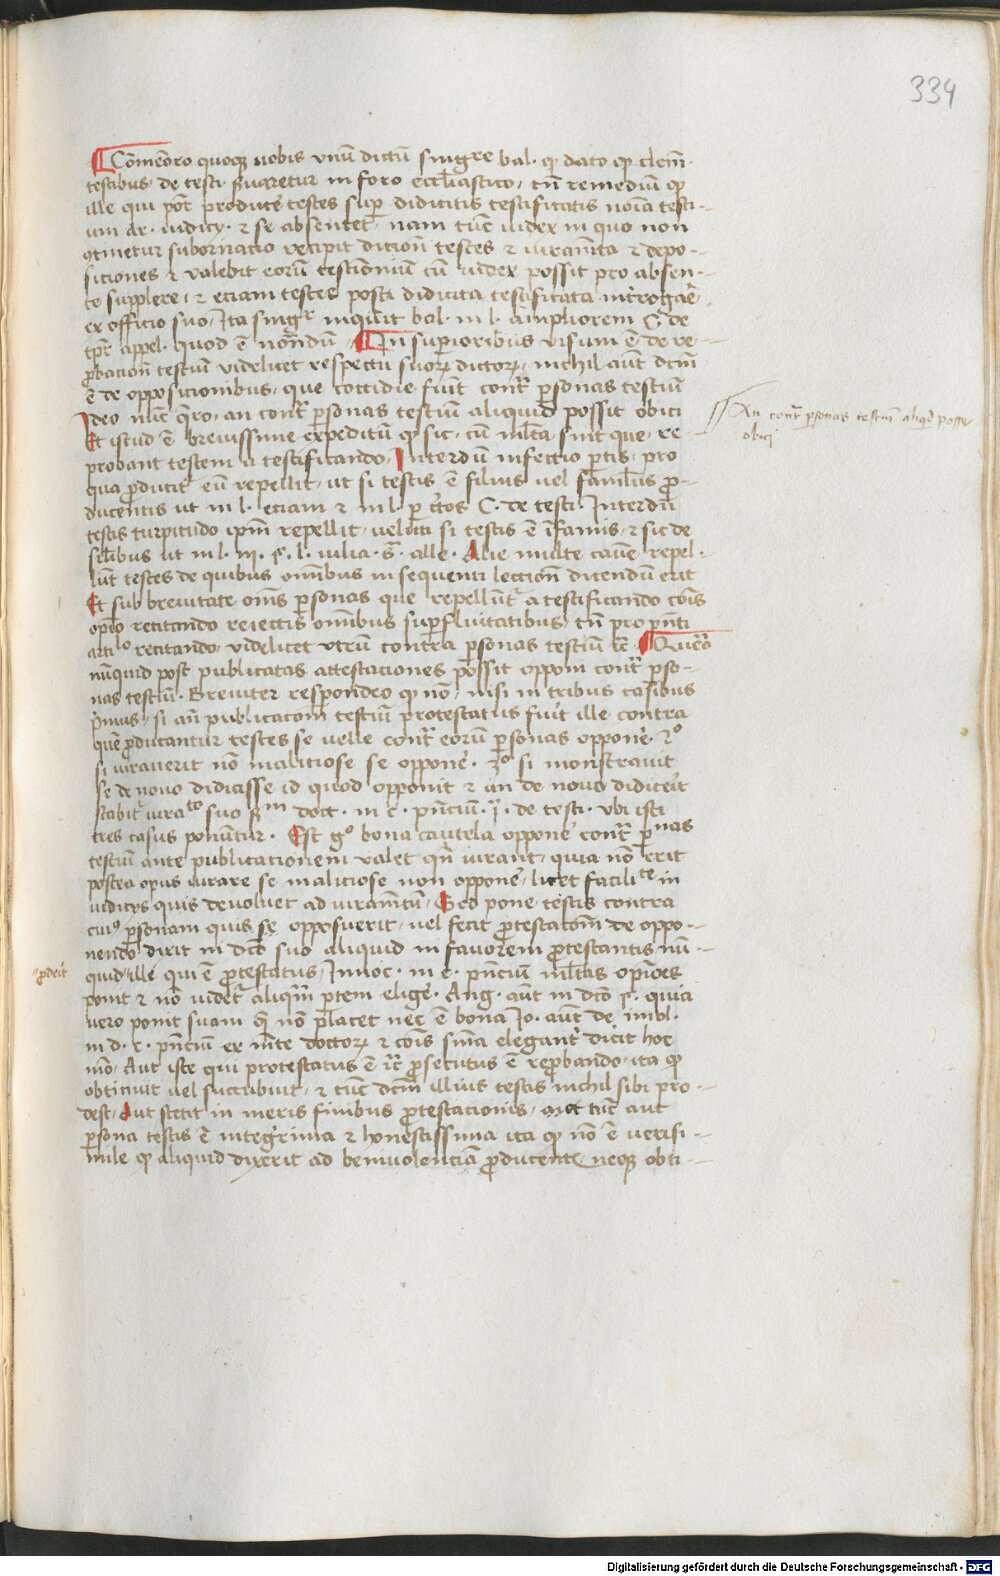 334
Co͞me͞oro quoqꝫ vobis vnu͞ dictu͞ singre bal· qꝫ dato qꝫ clem͞·
testibus· de testi· s͞uaretur in foro eccl͞iastico· tn͞ remediu͞ qꝫ
ille qui po͞t produce͞ testes sup͞ didicitis testificatis no͞ia testi-
um de· iudicij· ⁊ se absentet· nam tu͞c iudex in quo non
ꝯtinetur subornatio recipit dicto͞u testes ⁊ iuram͞ta ⁊ depo-
siciones ⁊ valebit eoru͞ testi͞moniu͞ cu͞ iudex possit pro absen-
te supplere· ⁊ etiam testes postꝗ didicita testificata int͞rogar͞
ex officio suo· Ita singr͞ inquit bal· in l· ampliorem C· de
tp͞r appel· quod e͞ no͞tandu͞ In superioribus visum e͞ de re-
ꝓbacio͞n testiu͞ videlicet respectu suoꝝ dictoꝝ· nichil aut͞ dc͞m
e͞ de oppositionibus· que cottidie fiu͞t cont͞r ꝑsonas testiu͞
Ideo nu͞c q͞ro· an cont͞r ꝑsonas testiu͞ aliquid possit obici
Et istud e͞ breuissime expeditu͞ qꝫ sic· cu͞ ml͞ta sint que· re-
probant testem a testificando· Interdu͞ infectio ꝑtis· pro
qua ꝓducit͞ eu͞ repellit· ut si testis e͞ filius vel famil͞us ꝓ-
ducentis ut in l· etiam ⁊ in l· ꝑe͞tos C· de testi· Interdu͞
testis turpitudo ip͞m repellit· veluti si testis e͞ i͞famis· ⁊ sic de
sil͞ibus ut in l· iij· §· l· iulia· ff͞· alle· Alie multe cause͞ repel-
lu͞t testes de quibus omnibus in sequenti lectio͞n dicendu͞ erit
Et sub breuitate om͞s ꝑsonas que repellu͞t͞ a testificando co͞is
opi͞o recitando reiectis omnibus sup͞fluitatibus· tn͞ pro pn͞ti
artilo recitando· videlicet vtru͞ contra ꝑsonas testiu͞ ⁊c͞ Quero͞
nu͞quid post publicatas attestaciones possit opponi cont͞r ꝑso-
nas testiu͞· Breuiter respondeo qꝫ no͞· nisi in tribus casibus
p͞mus· si an͞ publicacio͞m testiu͞ protestatus fu͞it ille contra
que͞ ꝓducantur testes se velle cont͞r eoru͞ ꝑsonas oppone͞· 2o
si iurauerit no͞ maliciose se oppone͞· 3o si monstrauit
se de nouo didicisse id quod opponit ⁊ an de nouo didice͞it
stabit͞ iurato suo ẜm doct· in c· pn͞ciu͞· ij· de testi· vbi isti
tres casus ponu͞tur· Est go bona cautela oppone͞ cont͞r ꝑnas
testiu͞ ante publicationem valet qn͞ iurant· quia no͞ erit
postea opus iurare se maliciose non oppone͞· licet facilite in
iudicijs quis deuoluet ad iuram͞tu͞· Sed pone testis contra
cuiꝰ ꝑsonam quis se opposuerit· vel fecit ꝓtestacio͞m de oppo-
nendo dixit in dc͞o suo aliquid in fauorem ꝓtestantis· nu͞-
quid ille qui e͞ ꝓtestatus· Innoc· in c· pn͞ciu͞ ml͞tas opi͞oes
ponit ⁊ no͞ videt͞ aliq͞m ꝑtem elige͞· Ang· aut͞ in dc͞o §· quia
vero ponit suam q͞ no͞ placet nec͞ e͞ bona Jo· aut͞ de imbl·
in d· c· pn͞ciu͞ ex m͞te doctoꝝ ⁊ co͞is sn͞ia elegant͞ dicit hoc
mo͞· Aut iste qui protestatus e͞ it͞ ꝓsecutus e͞ reꝓbando· ita qꝫ
obtinuit vel succubuit· ⁊ tu͞c dc͞m illius testis nichil sibi pro-
dest· Aut stetit in meris finibus ꝓtestacionis· et tu͞c aut
ꝑsona testis e͞ integerima ⁊ honestissima ita qꝫ no͞ e͞ verisi-
mile qꝫ aliquid dixerit ad beniuolencia͞ ꝓducentis neqꝫ obti-
An cont͞r ꝑsonas testiu͞ aliqd͞ possit
obici
ꝓde͞it
Digitalisierung gefördert durch die Deutsche Forschungsgemeinschaft - DFG